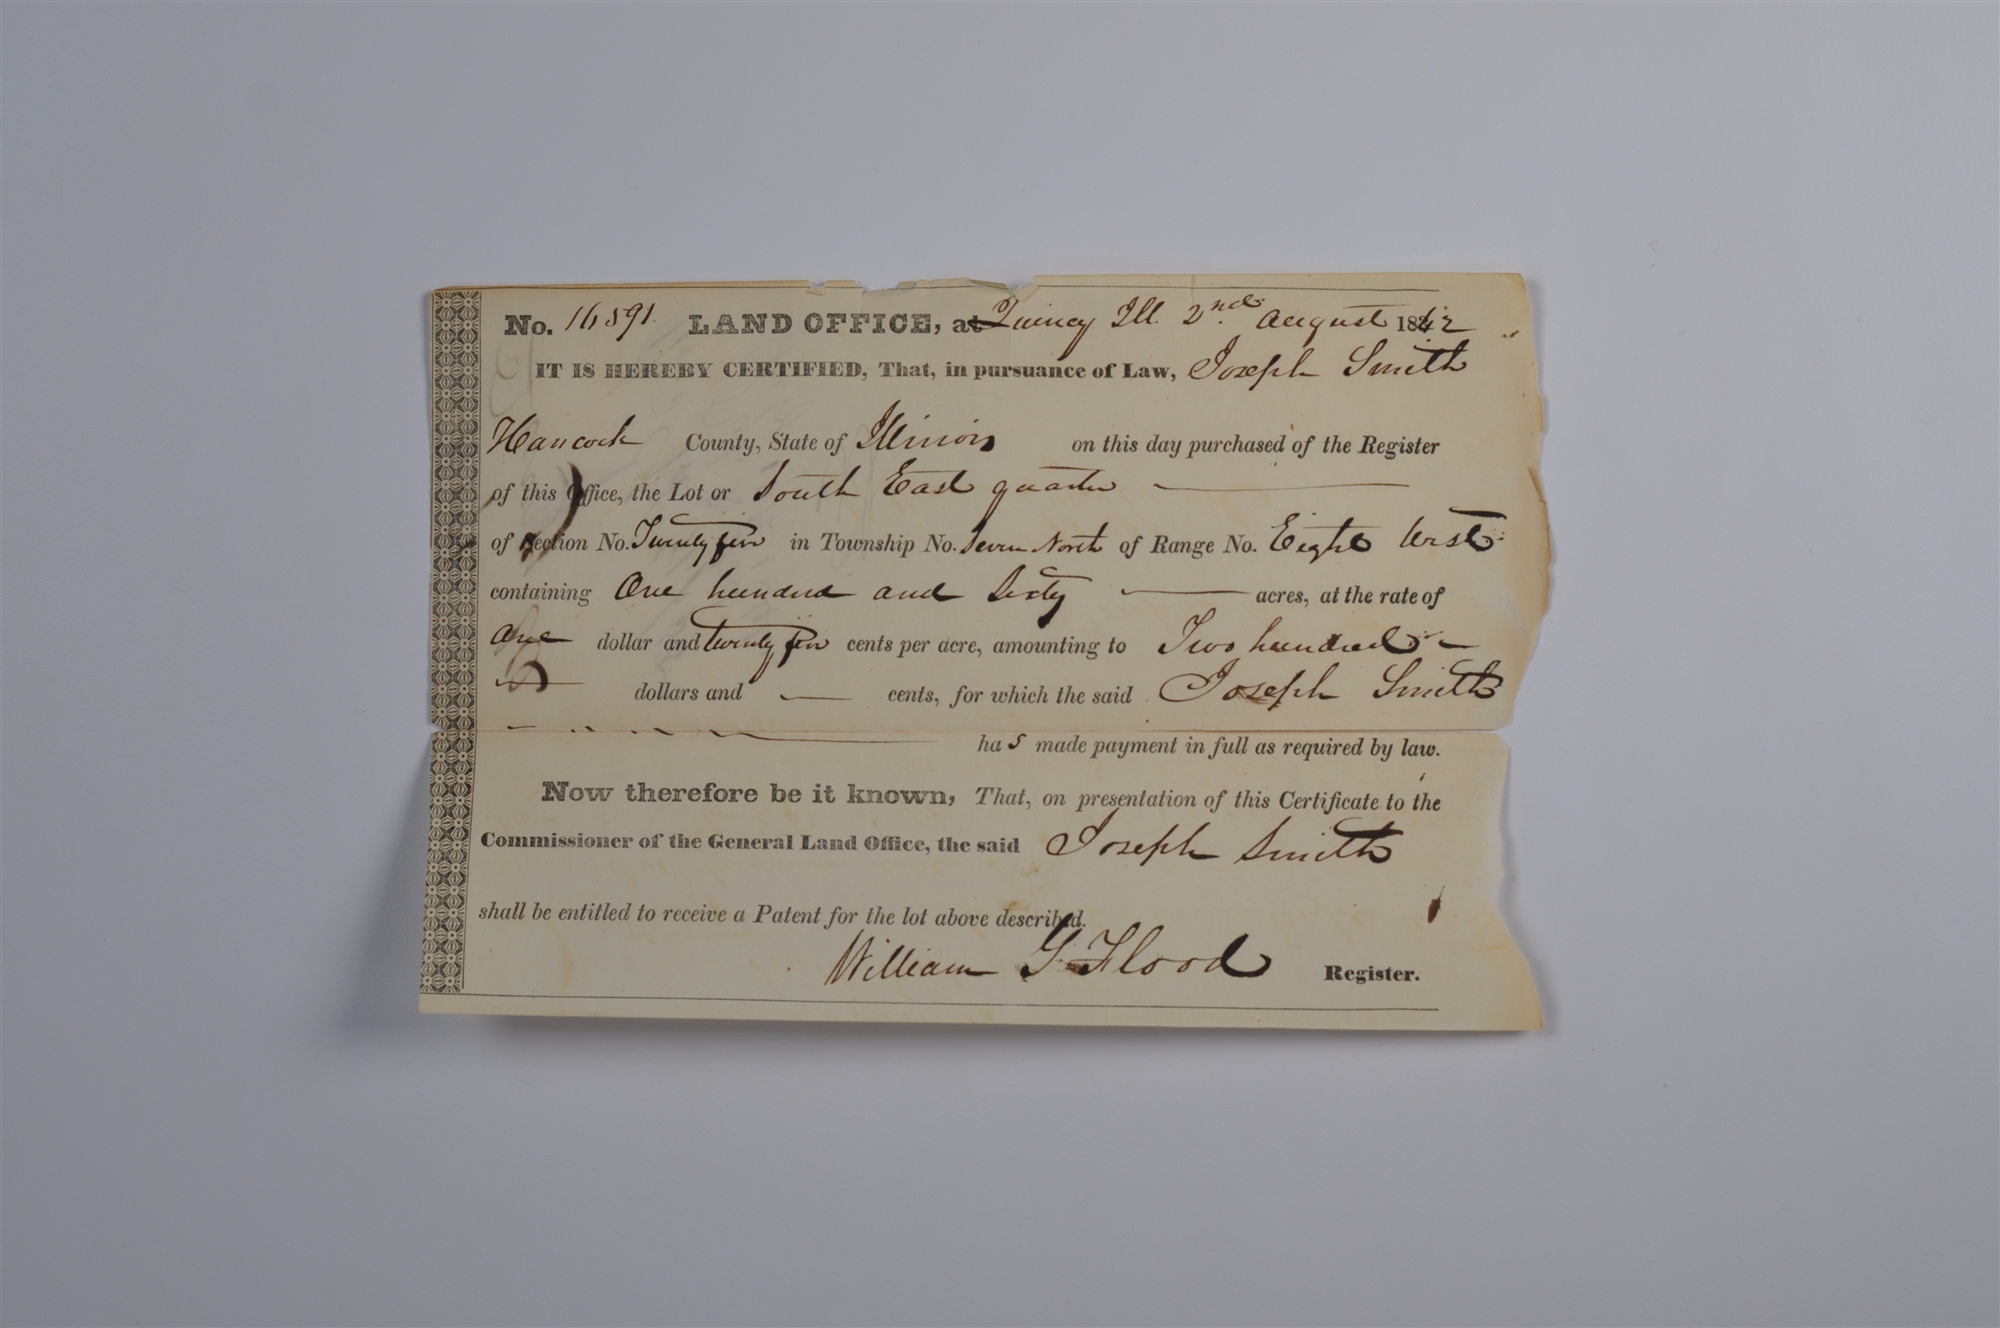 No. 16591. LAND OFFICE, at Quincy Ill. 2nd. August 1842
IT IS HEREBY CERTIFIED, That, in pursuance of Law, Joseph Smith
Hancock County, State of Illinois on this day purchased of the Register
of this Office, the Lot or South East quarter —
of Section No. Twenty five in Township No. Seven North of Range No. Eight West
containing One hundred and Sixty — acres, at the rate of
One dollar and twenty five cents per acre, amounting to Two hundred —
— dollars and — cents, for which the said Joseph Smith
— has made payment in full as required by law.
Now therefore be it known, That, on presentation of this Certificate to the
Commissioner of the General Land Office, the said Joseph Smith
shall be entitled to receive a Patent for the lot above described.
William G Flood Register.